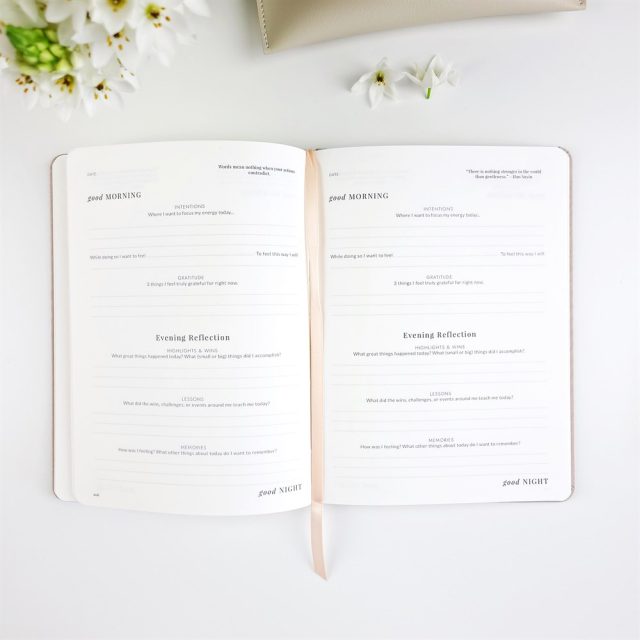 DATE:
Words mean nothing when your actions
contradict.
good MORNING
INTENTIONS
Where I want to focus my energy today...
While doing so I want to feel
To feel this way I will
GRATITUDE
3 things I feel truly grateful for right now.
Evening Reflection
HIGHLIGHTS & WINS
What great things happened today? What (small or big) things did I accomplish?
LESSONS
What did the wins, challenges, or events around me teach me today?
MEMORIES
How was I feeling? What other things about today do I want to remember?
good NIGHT
DATE:
"There is nothing stronger in the world
than gentleness." - Han Suyin
good MORNING
INTENTIONS
Where I want to focus my energy today...
While doing so I want to feel
To feel this way I will
GRATITUDE
3 things I feel truly grateful for right now.
Evening Reflection
HIGHLIGHTS & WINS
What great things happened today? What (small or big) things did I accomplish?
LESSONS
What did the wins, challenges, or events around me teach me today?
MEMORIES
How was I feeling? What other things about today do I want to remember?
good NIGHT